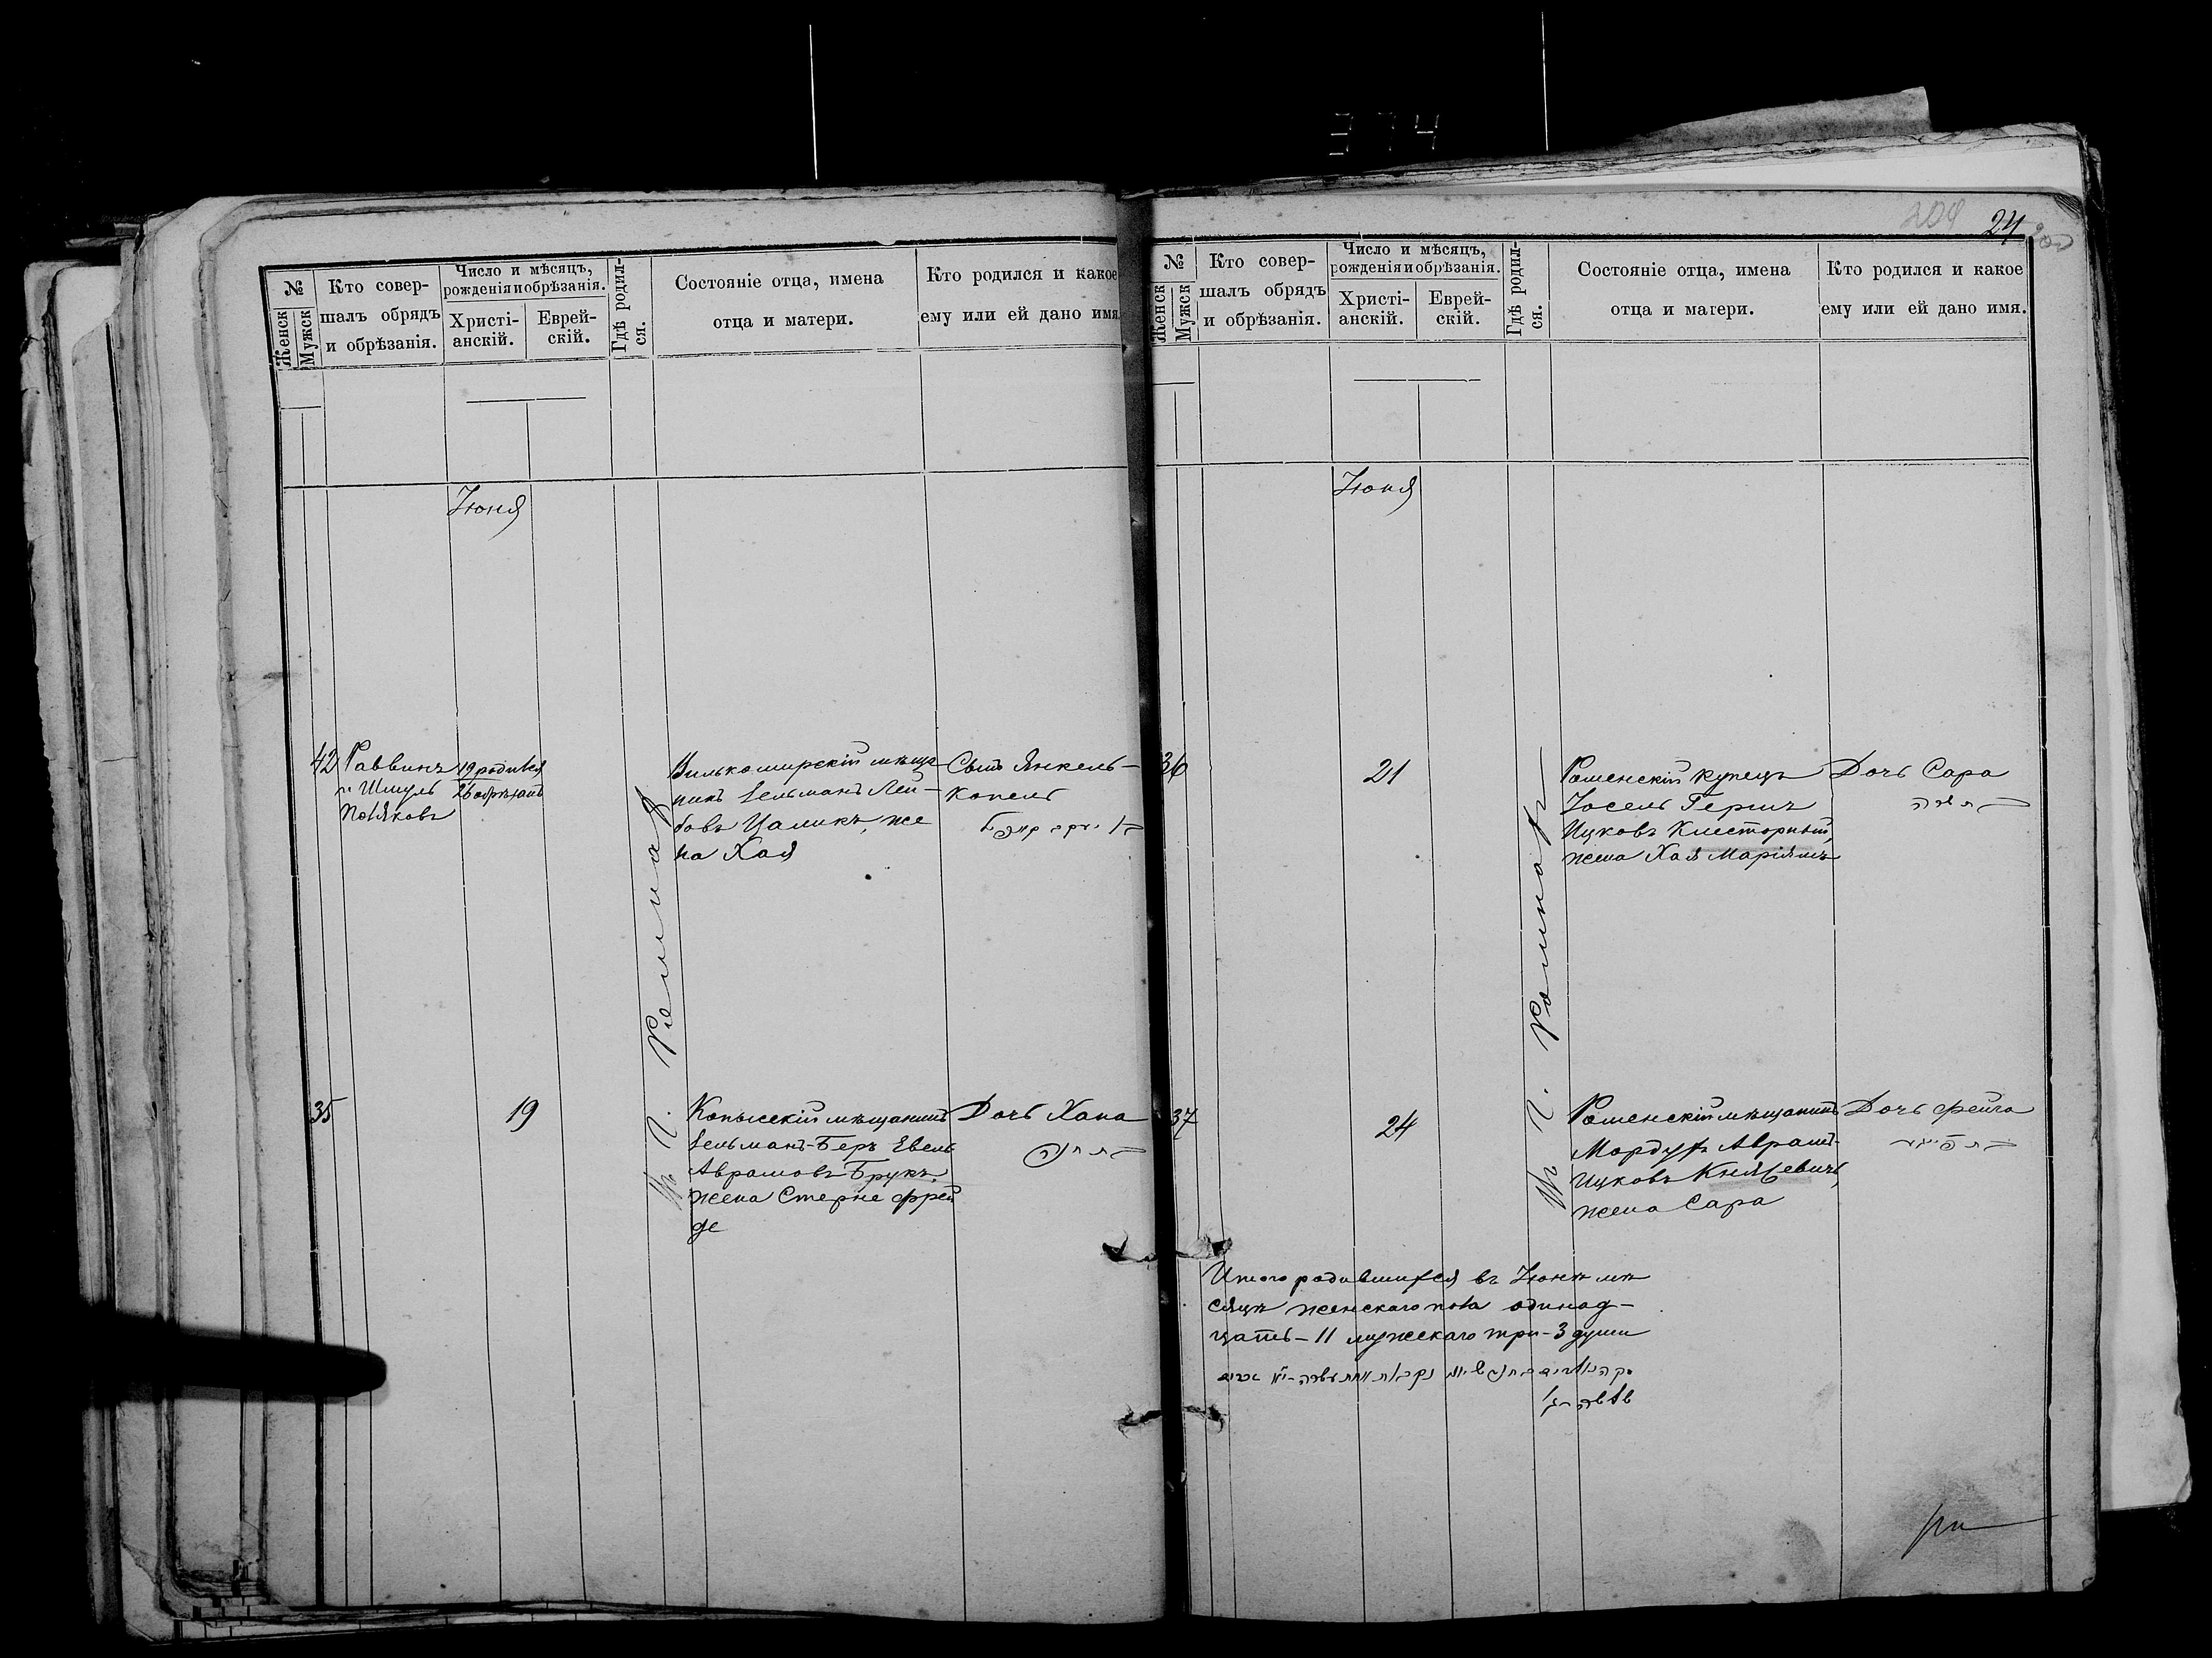 374
№
Женск
Мужск
Кто совер-
шалъ обрядъ
и обрѣзанія.
Число и мѣсяцъ,
рожденія и обрѣзанія.
Христі-
анскій.
Еврей-
скій.
Гдѣ родил-
ся.
Состояніе отца, имена
отца и матери.
Кто родился и какое
ему или ей дано имя.
Іюня
42
Раввинъ
Шмуль
Поляковъ
19 родился
26 обрѣзанъ
Вилькомирскій мѣща
нинъ Зельманъ Лей-
бовъ Цаликъ, же
на Хая
Сынъ Янкель-
Копель
Въ г. Ромнахъ
35
19
Копысскій мѣщанинъ
Зельманъ-Беръ Евель
Абрамовъ Брукъ,
жена Стерне Фрей
де
Дочь Хана
24
№
Женск
Мужск
Кто совер-
шалъ обрядъ
и обрѣзанія.
Число и мѣсяцъ,
рожденія и обрѣзанія.
Христі-
анскій.
Еврей-
скій.
Гдѣ родил-
ся.
Состояніе отца, имена
отца и матери.
Кто родился и какое
ему или ей дано имя.
Іюня
36
21
Роменскій купецъ
Іосель Гершъ
Ицковъ Клисторный,
жена Хая Маріямъ
Дочь Сара
שרה
Въ г. Ромнахъ
37
24
Роменскій мѣщанинъ
Мордухъ Абрамъ-
Ицковъ Князевичъ,
жена Сара
Дочь Фейга
Итого родившихся въ Іюнѣ мѣ
сяцѣ женскаго пола одинад-
цать - 11 мужскаго три - 3 души